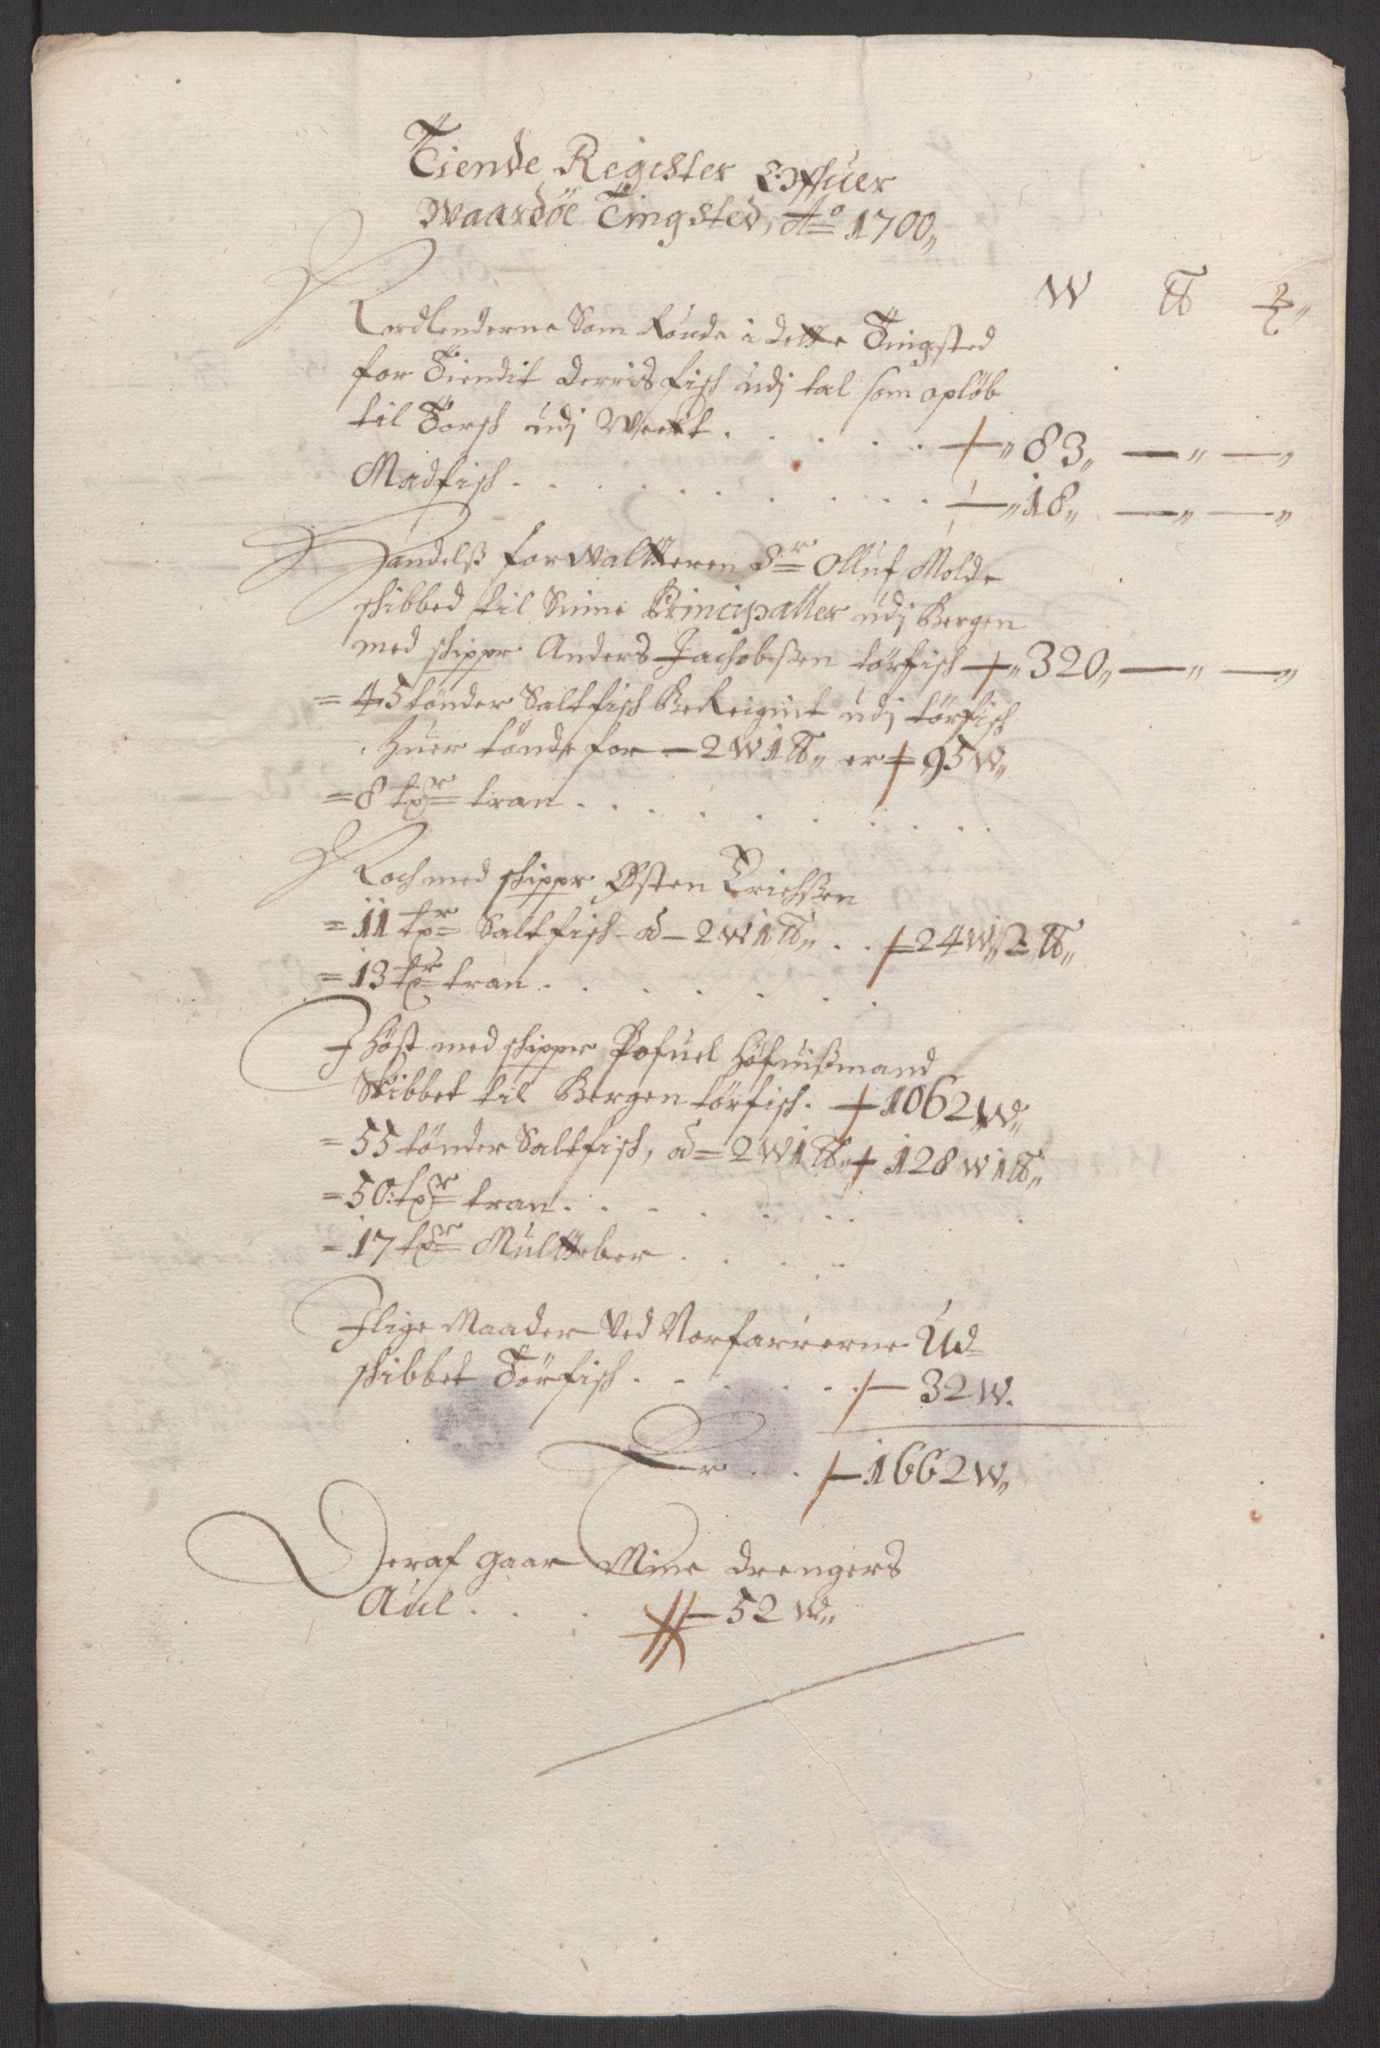 Tiende Register Offuer
Waardøe Tingsted, Ao 1700,,
W ℔ ℥,,
Nordlenderne Som Roude i dette Tingsted
for Tiendit derris fisk udj tal som opløb
til Torsk udj Wect . . . . . 83,, — ,, — ,,
Madfisk . . . . . . . . . 18,, — ,, — ,,
Handelß forwaltteren Sr Olluf Molde
skibbed til Sinne Principaller udj Bergen
med skippr Anders Jachobsßen törfisk 320,, — ,, — ,,
= 45 tønder Saltfisk BeReignit udj törfisk
Huer tønde for — 2 W 1 ℔,, er = 95 W,,
= 8 tr tran . . . . . . . .
Noch med skippr Østen Erichßen
= 11 tr Saltfisk a — 2 W 1 ℔,, . . 24 W,, 2 ℔,,
= 13 tr tran . . . . . . .
J Høst med skippr Pofuel Höfuißmand
Skibbet til Bergen törfisk . 1062 W,,
= 55 tønder Saltfisk, a = 2 W 1 ℔,, 128 W 1 ℔,,
= 50: tr tran . . . . . . .
= 17 tr Multteber . . . .
J lige Maader Ved Vorfarrerne Ud-
skibbet Törfisk . . . . . . — 32 W.
Er . . . 1662 W,,
Deraf gaar Mine drengers
Aul . . . — 52 W,,